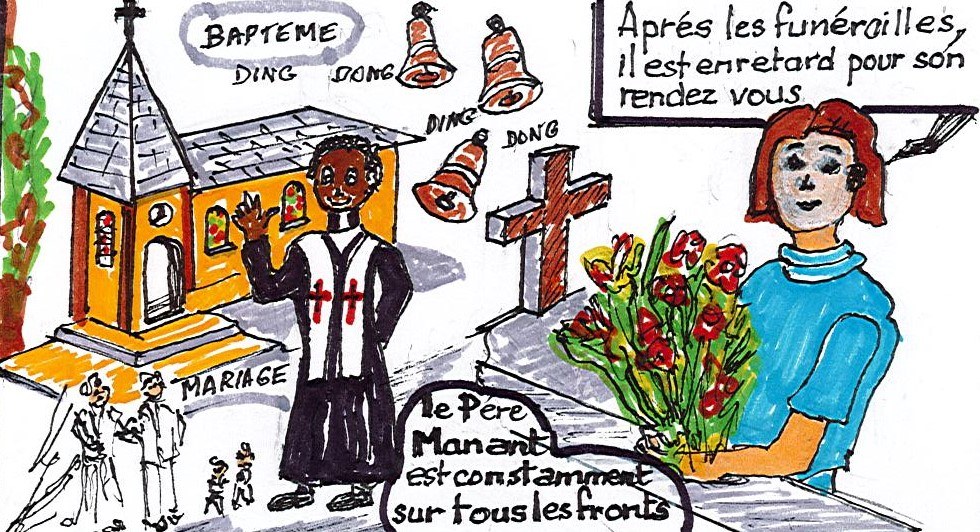 BAPTEME
DING DONG
DING
DONG
Aprés les funérailles,
il est en retard pour son
rendez vous
MARIAGE
le Pére
Manant
est constamment
sur tous les fronts